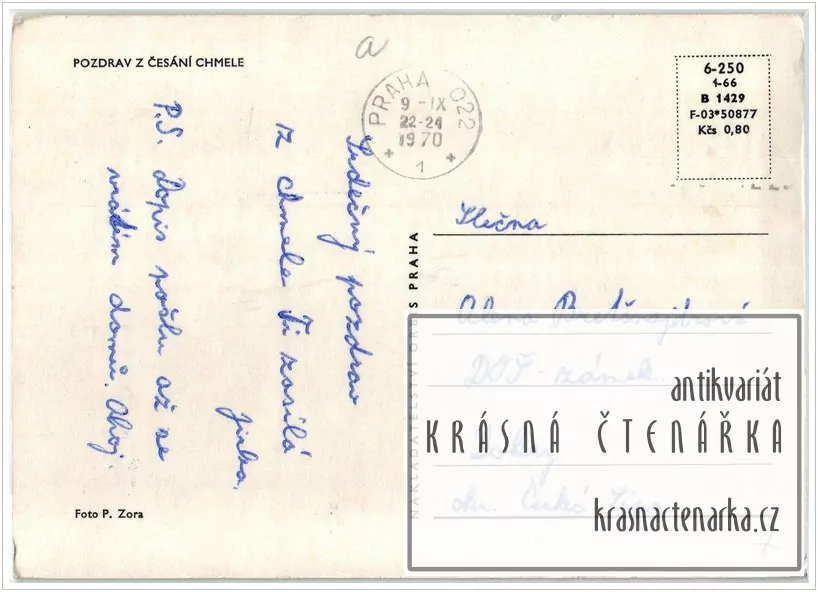 POZDRAV Z ČESÁNÍ CHMELE
a
PRAHA 022
9 -IX
22-24
1970
* 1 *
6-250
1-66
B 1429
F-03*50877
Kčs 0,80
Srdečný pozdrav
z chmele Ti zasílá
Jirka.
P.S. Dopis pošlu až se
vrátím domů. Ahoj.
Slečna
Alena
DOŘ zámek
okr. Česká
NAKLADATELSTVÍ ORBIS PRAHA
antikvariát
KRÁSNÁ ČTENÁŘKA
krasnactenarka.cz
Foto P. Zora